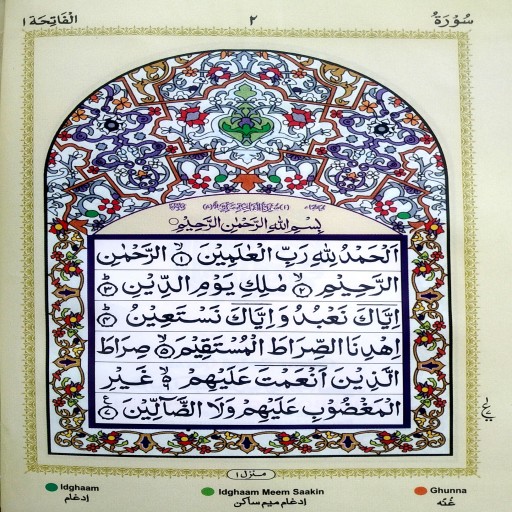 سُوْرَةُ ٢ اَلْفَاتِحَة ١
بِسْمِ اللهِ الرَّحْمٰنِ الرَّحِيْمِ
اَلْحَمْدُ لِلّٰهِ رَبِّ الْعٰلَمِيْنَ ۙ﴿١﴾ الرَّحْمٰنِ
الرَّحِيْمِ ۙ﴿٢﴾ مٰلِكِ يَوْمِ الدِّيْنِ ؕ﴿٣﴾
اِيَّاكَ نَعْبُدُ وَ اِيَّاكَ نَسْتَعِيْنُ ؕ﴿٤﴾
اِهْدِنَا الصِّرَاطَ الْمُسْتَقِيْمَ ۙ﴿٥﴾ صِرَاطَ
الَّذِيْنَ اَنْعَمْتَ عَلَيْهِمْ ۙ﴿٦﴾ غَيْرِ
الْمَغْضُوْبِ عَلَيْهِمْ وَلَا الضَّآلِّيْنَ ﴿٧﴾
منزل ١
Idghaam Idghaam Meem Saakin Ghunna
ادغام ادغام میم ساکن غُنّه